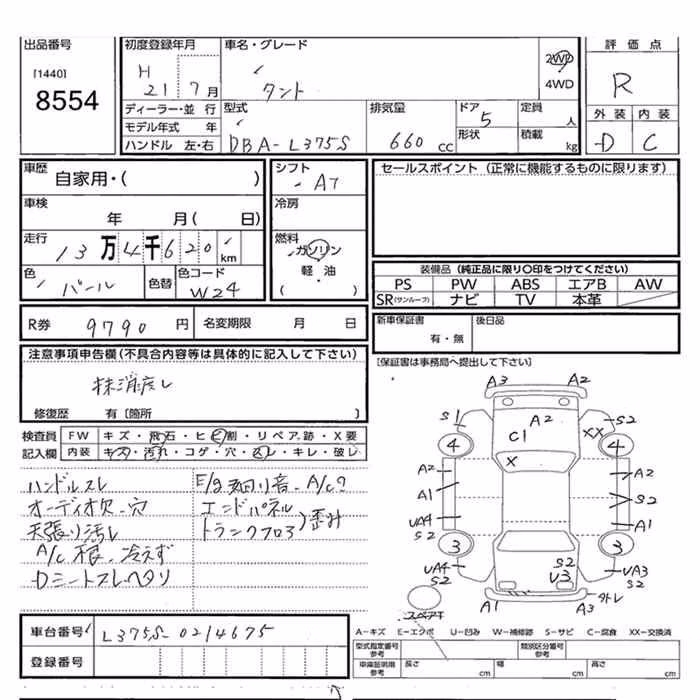 出品番号
[1440]
8554
初度登録年月
H 21 7月
車名・グレード
タント
2WD
4WD
評価点
R
外装 内装
D C
ディーラー・並行
モデル年式 年
ハンドル 左・右
型式
DBA-L375S
排気量
660 cc
ドア
5
形状
定員
人
積載
kg
車歴
自家用・( )
車検
年 月( 日)
走行
13万4千620 km
色
パール
色替
色コード
W24
シフト
AT
冷房
燃料
ガソリン
軽・油
( )
セールスポイント (正常に機能するものに限ります)
装備品 (純正品に限り〇印をつけてください)
PS PW ABS エアB AW
SR(サンルーフ) ナビ TV 本革
R券 9790 円 名変期限 月 日
新車保証書
有・無
後日品
注意事項申告欄(不具合内容等は具体的に記入して下さい)
抹消渡し
修復歴 有[箇所 ]
[保証書は事務局へ提出して下さい]
検査員 FW キズ・飛石・ヒビ割・リペア跡・X要
記入欄 内装 キズ・汚れ・コゲ・穴・スレ・キレ・破レ
ハンドルスレ
オーディオ欠・穴
天張り汚レ
A/C 不良・冷えず
Dシートスレヘタリ
E/g 廻り音・A/C?
エンドパネル
トランクフロア 歪み
A3 A2
S1 A2 S2
C1 XX
4 4
X
A2 A2
A1 S2
UA4 A1
S2
3 3
UA4 S2 UA3
S2 U3 S2
A1 A3 外レ
スペアT
A-キズ E-エクボ U-凹み W-補修跡 S-サビ C-腐食 XX-交換済
車台番号 L375S-0214675
登録番号
型式指定番号
参考
類別区分番号
参考
車庫証明用
参考
長さ cm 幅 cm 高さ cm